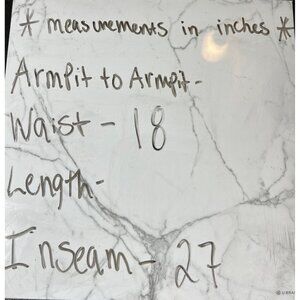 * measurements in inches *
Armpit to Armpit -
Waist - 18
Length -
Inseam - 27